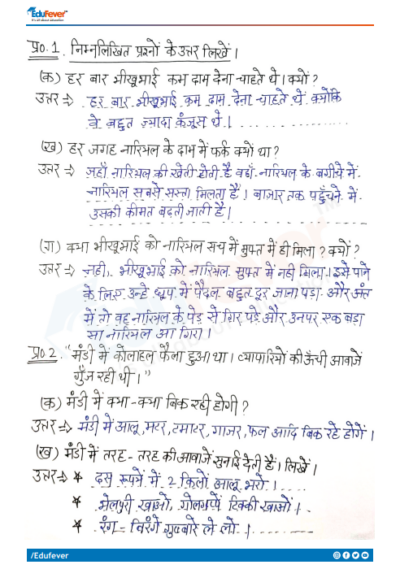 EduFever
प्र0.1. निम्नलिखित प्रश्नों के उत्तर लिखें।
(क) हर बार भीखूभाई कम दाम देना चाहते थे। क्यों?
उत्तर ⇒ हर बार भीखूभाई कम दाम देना चाहते थे क्योंकि
वे बहुत ज़्यादा कंजूस थे।
(ख) हर जगह नारियल के दाम में फर्क क्यों था?
उत्तर ⇒ जहाँ नारियल की खेती होती है वहाँ नारियल के बगीचे में
नारियल सबसे सस्ता मिलता है। बाजार तक पहुँचने में
उसकी कीमत बढ़ती जाती है।
(ग) क्या भीखूभाई को नारियल सच में मुफ्त में ही मिला? क्यों?
उत्तर ⇒ नहीं, भीखूभाई को नारियल मुफ्त में नहीं मिला। इसे पाने
के लिए उन्हें धूप में पैदल बहुत दूर जाना पड़ा और अंत
में तो वह नारियल के पेड़ से गिर पड़े और उनपर एक बड़ा
सा नारियल आ गिरा।
प्र0 2. "मंडी में कोलाहल फैला हुआ था। व्यापारियों की ऊँची आवाजें
गूँज रही थी।"
(क) मंडी में क्या-क्या बिक रही होगी?
उत्तर ⇒ मंडी में आलू, मटर, टमाटर, गाजर, फल आदि बिक रहे होंगें।
(ख) मंडी में तरह-तरह की आवाजें सुनाई देती हैं। लिखें।
उत्तर ⇒ * दस रूपये में 2 किलो आलू भरो।
* भेलपुरी खाओ, गोलगप्पे टिक्की खाओ।
* रंग-बिरंगे गुब्बारे ले लो।
/Edufever